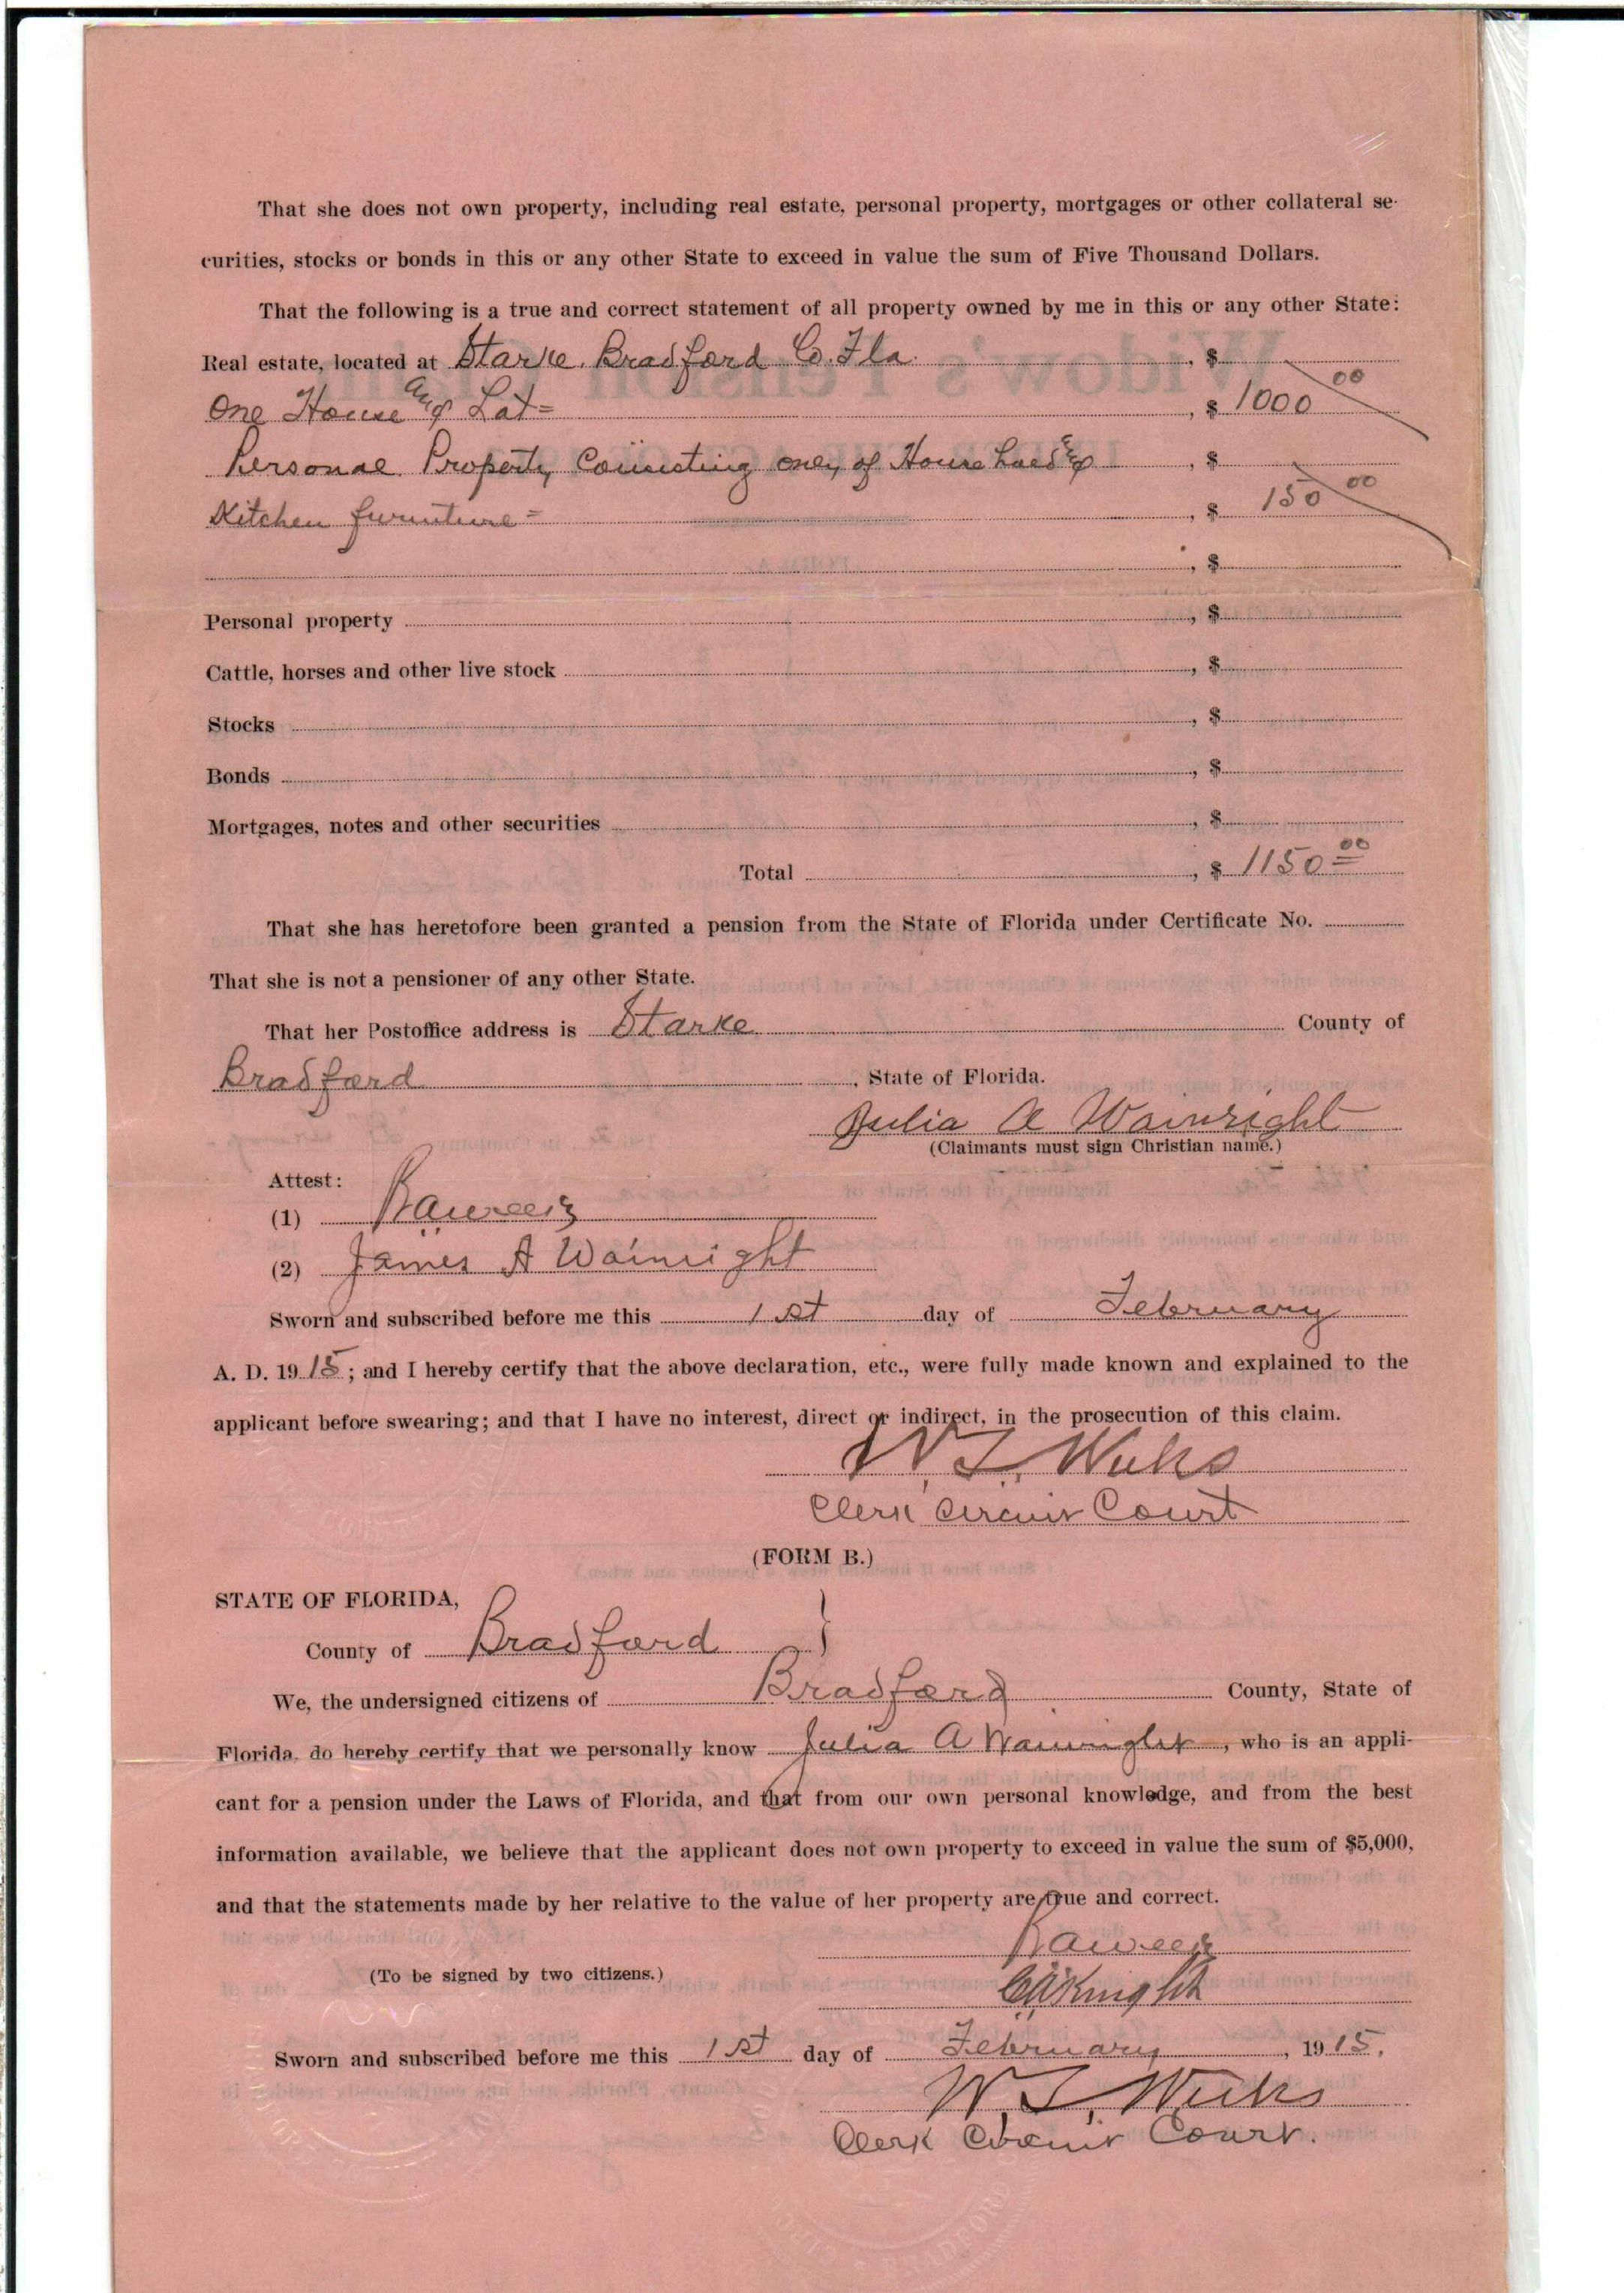 That she does not own property, including real estate, personal property, mortgages or other collateral se-
curities, stocks or bonds in this or any other State to exceed in value the sum of Five Thousand Dollars.
That the following is a true and correct statement of all property owned by me in this or any other State:
Real estate, located at Starke. Bradford Co. Fla. , $
One House and Lot= , $ 1000 00
Personal Property Consisting only of House hold & , $
Kitchen furniture= , $ 150 00
, $
Personal property , $
Cattle, horses and other live stock , $
Stocks , $
Bonds , $
Mortgages, notes and other securities , $
Total , $ 1150 00
That she has heretofore been granted a pension from the State of Florida under Certificate No.
That she is not a pensioner of any other State.
That her Postoffice address is Starke County of
Bradford , State of Florida.
Julia A Wainright
(Claimants must sign Christian name.)
Attest:
(1)
(2) James A Wainright
Sworn and subscribed before me this 1st day of February
A. D. 1915; and I hereby certify that the above declaration, etc., were fully made known and explained to the
applicant before swearing; and that I have no interest, direct or indirect, in the prosecution of this claim.
Clerk Circuit Court
(FORM B.)
STATE OF FLORIDA,
County of Bradford }
We, the undersigned citizens of Bradford County, State of
Florida, do hereby certify that we personally know Julia A Wainright, who is an appli-
cant for a pension under the Laws of Florida, and that from our own personal knowledge, and from the best
information available, we believe that the applicant does not own property to exceed in value the sum of $5,000,
and that the statements made by her relative to the value of her property are true and correct.
(To be signed by two citizens.)
Knight
Sworn and subscribed before me this 1st day of February, 1915.
Clerk Circuit Court.